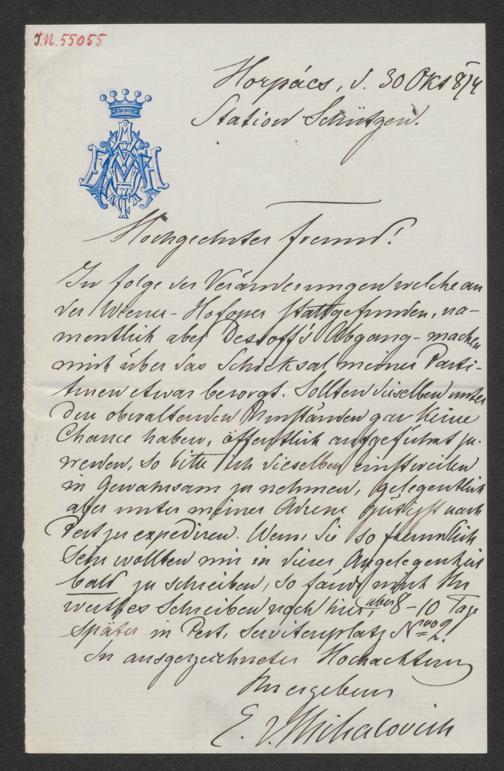 I.N. 55055
Horpács, d. 30 Okt 874
Station Schützen.
Hochgeehrter Freund!
In folge der Veränderungen welche an
der Wiener-Hofoper stattgefunden, na-
mentlich aber Dessoff's Abgang - machen
mich über das Schicksal meiner Parti-
turen etwas besorgt. Sollten dieselben unter
den obwaltenden Umständen gar keine
Chance haben, öffentlich aufgeführt zu
werden, so bitte ich dieselben einstweilen
in Gewahrsam zu nehmen, gelegentlich
aber unter meiner Adresse gütigst nach
Pest zu expediren. Wenn Sie so freundlich
sein wollten mir in dieser Angelegenheit
bald zu schreiben, so fände mich Ihr
werthes Schreiben noch hier, aber 8-10 Tage
später in Pest, Servitenplatz Nro 2.
In ausgezeichneter Hochachtung
Ihr ergebener
E. v. Mihalovich